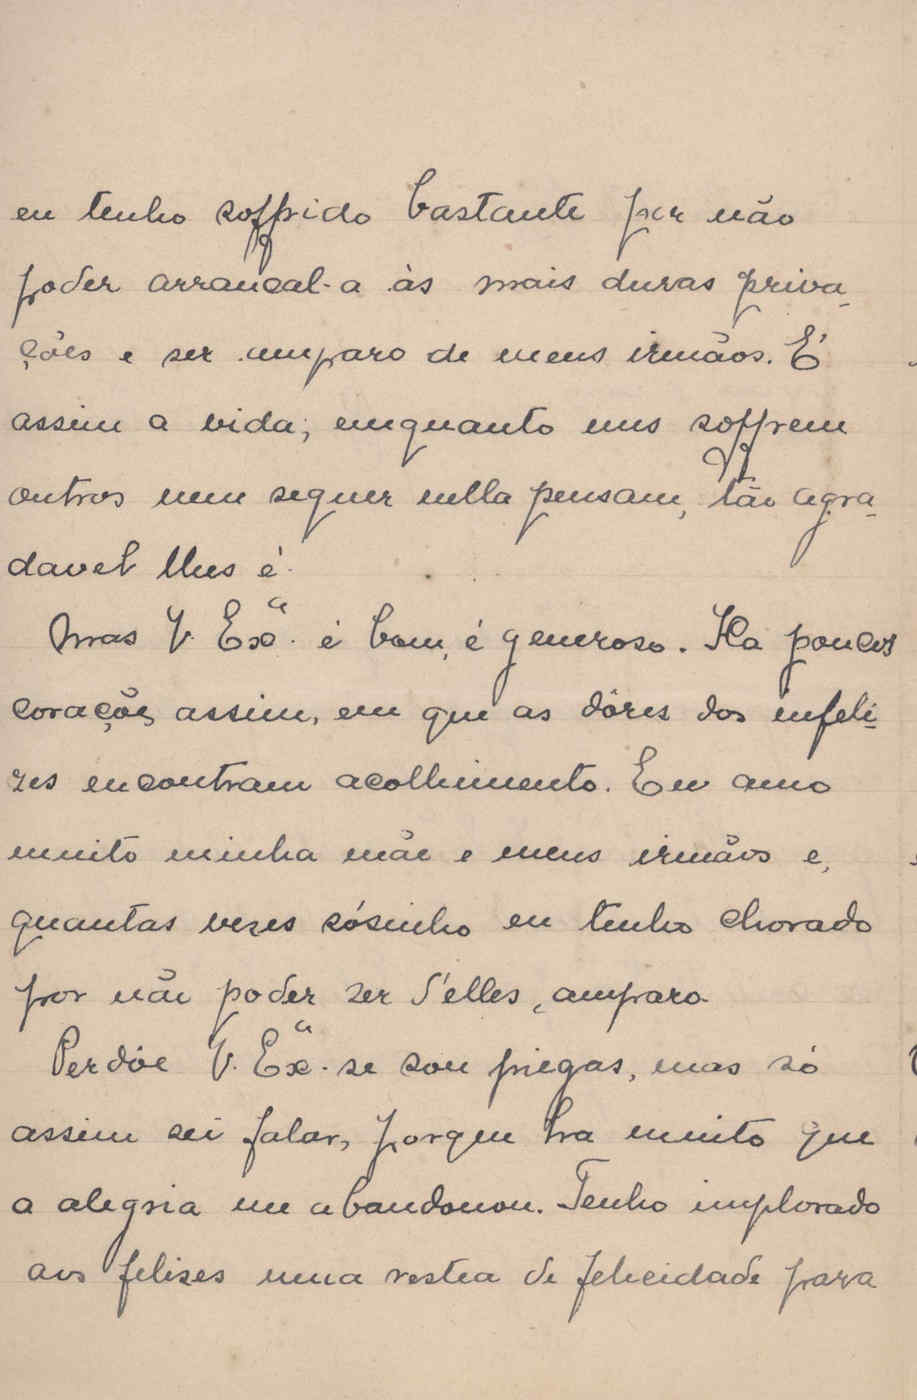 eu tenho soffrido bastante por não
poder arrancal-a ás mais duras priva-
ções e ser amparo de meus irmãos. É
assim a vida; emquanto uns soffrem
outros nem sequer nella pensam, tão agra-
davel lhes é.
Mas V. Exª. é bom, é generoso. Ha poucos
corações assim, em que as dôres dos infeli-
zes encontram acolhimento. Eu amo
muito minha mãe e meus irmãos e,
quantas vezes sósinho eu tenho chorado
por não poder ser d'elles, amparo.
Perdôe V. Exª. se sou piegas, mas só
assim sei falar, porque ha muito que
a alegria me abandonou. Tenho implorado
aos felises uma restea de felicidade para